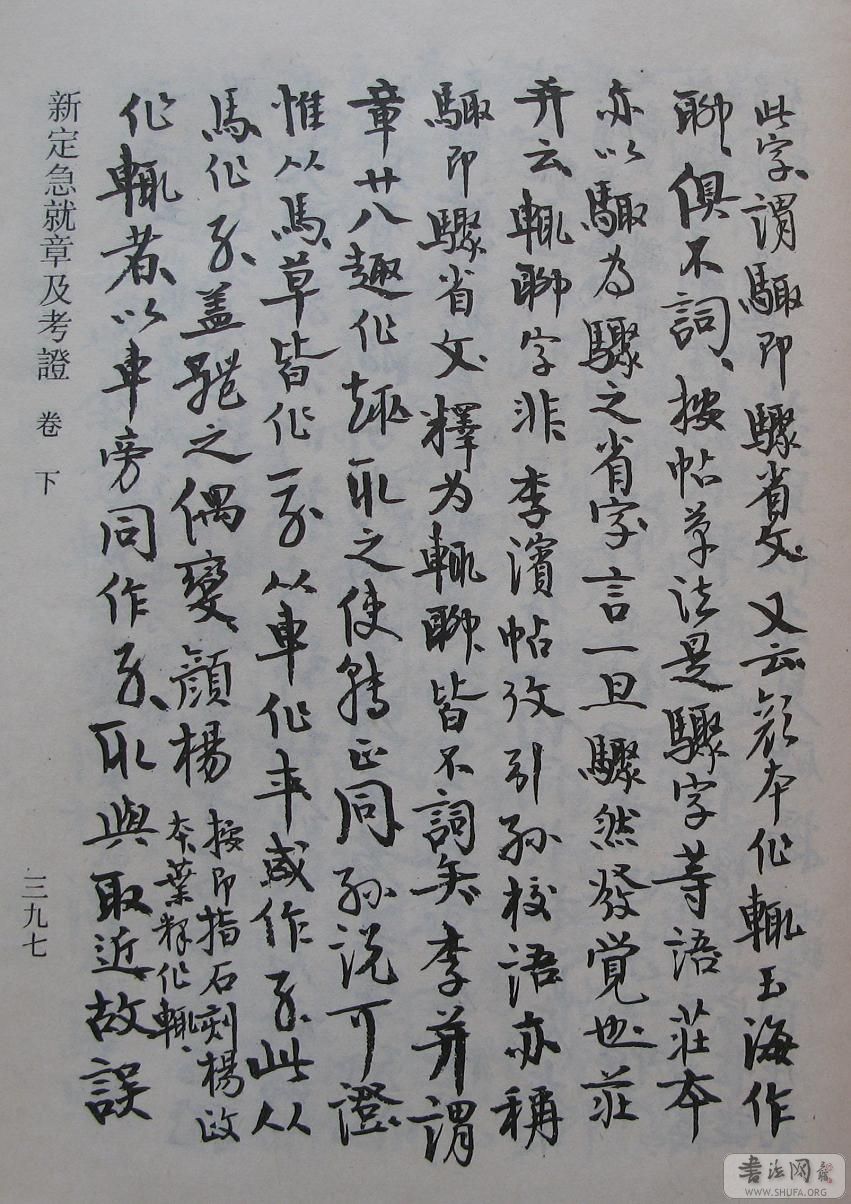 此字謂驅即驟省文又云顏本作輒玉海作
聊俱不詞按帖草法是驟字等語莊本
亦以驅為驟之省字言一旦驟然發覺也莊
并云輒聊字非李濱帖攷引孫校語亦稱
驅即驟省文釋為輒聊皆不詞矣李并謂
章廿八趣作趣取之使歸正同孫說可證
惟从馬草皆作 从車作 或作 此从
馬作 蓋體之偶變顏楊
按即指石刻楊政
本葉釋作輒
作輒者以車旁同作 取與取近故誤
新定急就章及考證 卷下
三九七
書法网
WWW.SHUFA.ORG